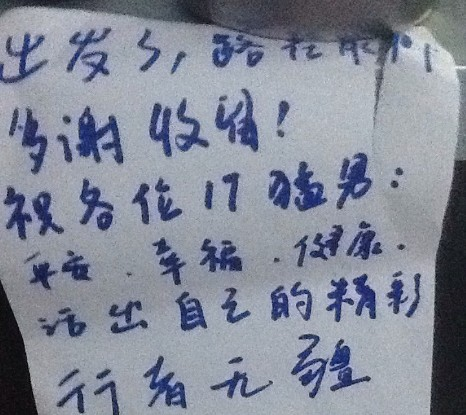 出发了,路在脚下
多谢收留!
祝各位IT猛男:
平安.幸福.健康.
活出自己的精彩
行者无疆